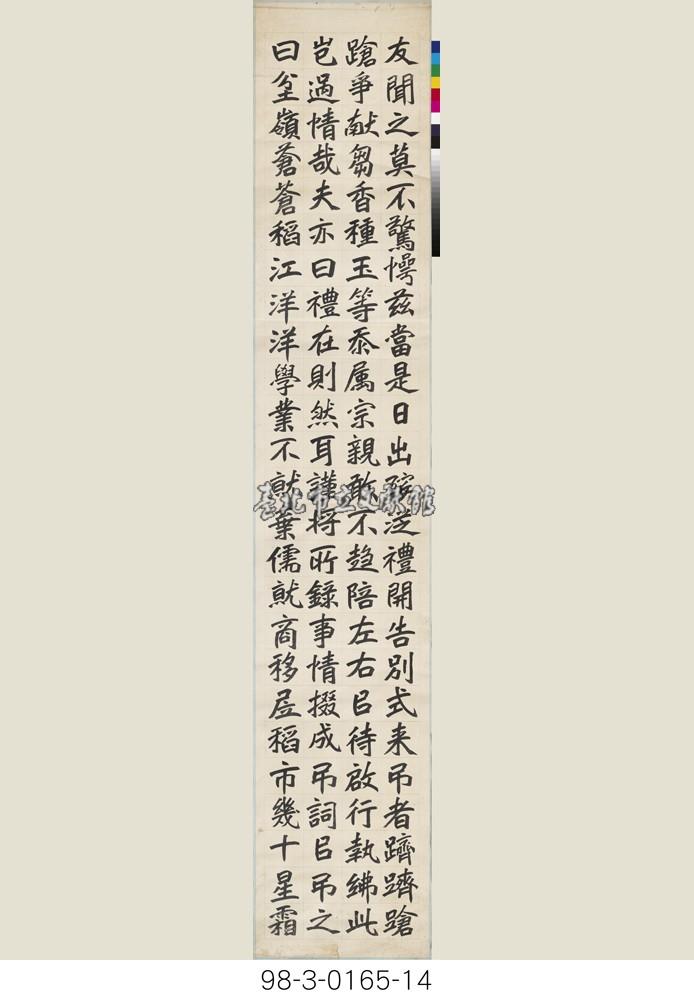 友聞之莫不驚愕茲當是日出殯泛禮開告別式来吊者躋躋蹌
蹌爭献芻香種玉等忝属宗親敢不趋陪左右㠯待啟行執紼此
岂過情哉夫亦曰禮在則然耳謹将所錄事情掇成吊詞㠯吊之
曰坌嶺蒼蒼稻江洋洋學業不就棄儒就商移居稻市幾十星霜
臺北市立文獻館
98-3-0165-14